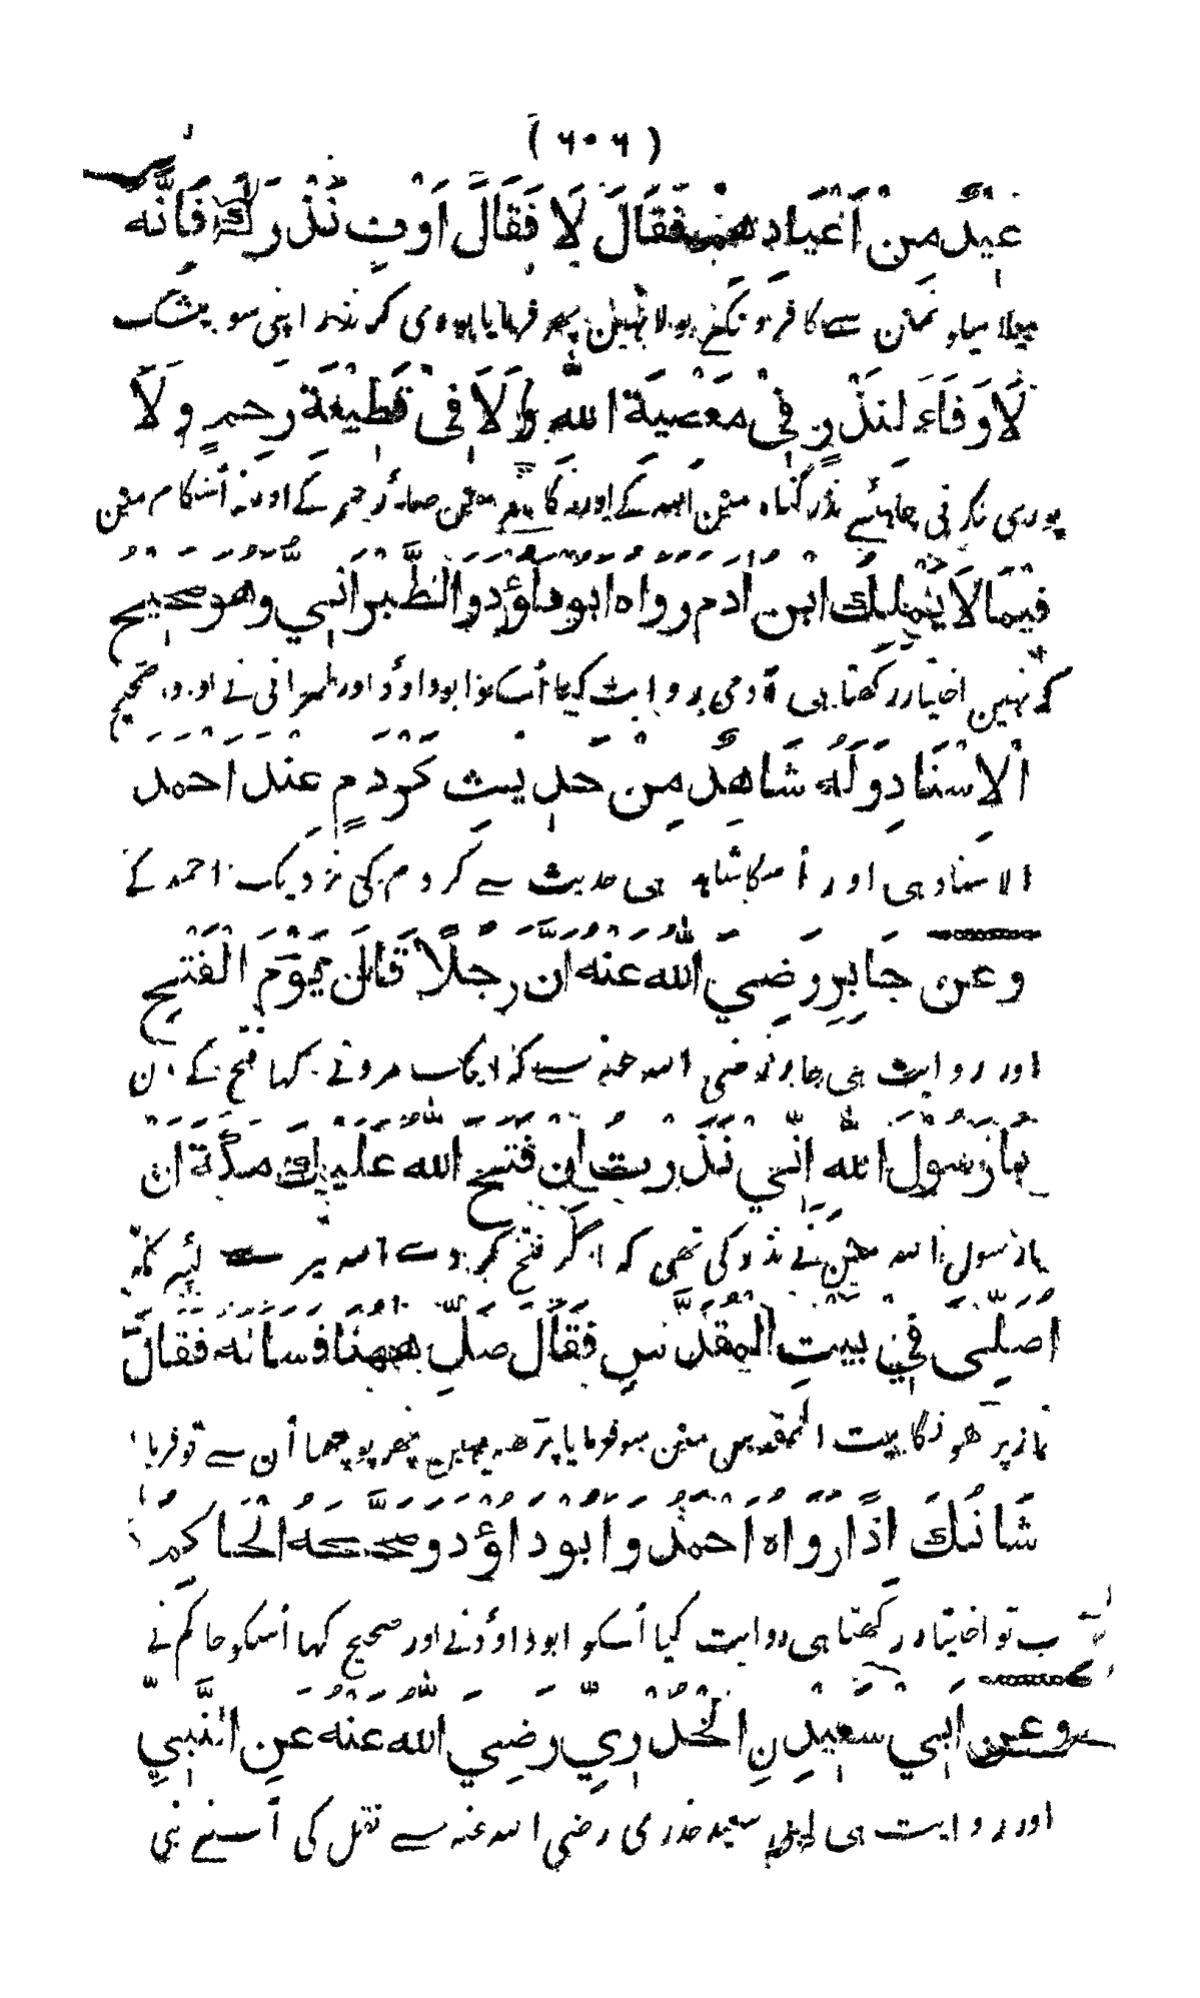 (٦٠٦)
عِيْدٌ مِنْ اَعْيَادِهِمْ فَقَالَ لَا فَقَالَ اَوْفِ بِنَذْرِكَ فَاِنَّهٗ
میلا نمین سے کافرونکے بولا نہین پھر فرمایا پوری کر نذر اپنی سو بیشک
لَا وَفَاءَ لِنَذْرٍ فِيْ مَعْصِيَةِ اللّٰهِ وَلَا فِيْ قَطِيْعَةِ رَحِمٍ وَلَا
پوری نکرنی چاہئے نذر گناہ مین اللہ کے اور نہ مین صلہ رحم کے اور نہ اُس کام مین
فِيْمَا لَا يَمْلِكُ ابْنُ اٰدَمَ رَوَاهُ اَبُوْ دَاوٗدَ وَالطَّبَرَانِيُّ وَهُوَ صَحِيْحُ
کہ نہین اختیار رکھتا ہی آدمی روایت کیا اُسکو ابو داؤد اور طبرانی نے اور وہ صحیح
الْاِسْنَادِ وَلَهٗ شَاهِدٌ مِنْ حَدِيْثِ كَرْدَمٍ عِنْدَ اَحْمَدَ
الاسناد ہی اور اُسکا شاہد ہی حدیث سے کردم کی نزدیک احمد کے
وَعَنْ جَابِرٍ رَضِيَ اللّٰهُ عَنْهُ اَنَّ رَجُلًا قَالَ يَوْمَ الْفَتْحِ
اور روایت ہی جابر رضی اللہ عنہ سے کہ ایک مرد نے کہا فتح کے دن
يَا رَسُوْلَ اللّٰهِ اِنِّيْ نَذَرْتُ اِنْ فَتَحَ اللّٰهُ عَلَيْكَ مَكَّةَ اَنْ
یا رسول اللہ مین نے نذر کی تھی کہ اگر فتح کر دے اللہ تیرے لئے مکہ
اُصَلِّيَ فِيْ بَيْتِ الْمَقْدِسِ فَقَالَ صَلِّ هٰهُنَا فَسَاَلَهٗ فَقَالَ
نماز پڑھونگا بیت المقدس مین سو فرمایا پڑھ یہین پھر پوچھا اُن سے تو فرمایا
شَانَكَ اِذًا رَوَاهُ اَحْمَدُ وَاَبُوْ دَاوٗدَ وَصَحَّحَهُ الْحَاكِمُ
اب تو اختیار رکھتا ہی روایت کیا اُسکو ابو داؤد نے اور صحیح کہا اُسکو حاکم نے
وَعَنْ اَبِيْ سَعِيْدِنِ الْخُدْرِيِّ رَضِيَ اللّٰهُ عَنْهُ عَنِ النَّبِيِّ
اور روایت ہی ابی سعید خدری رضی اللہ عنہ سے نقل کی اُسنے نبی